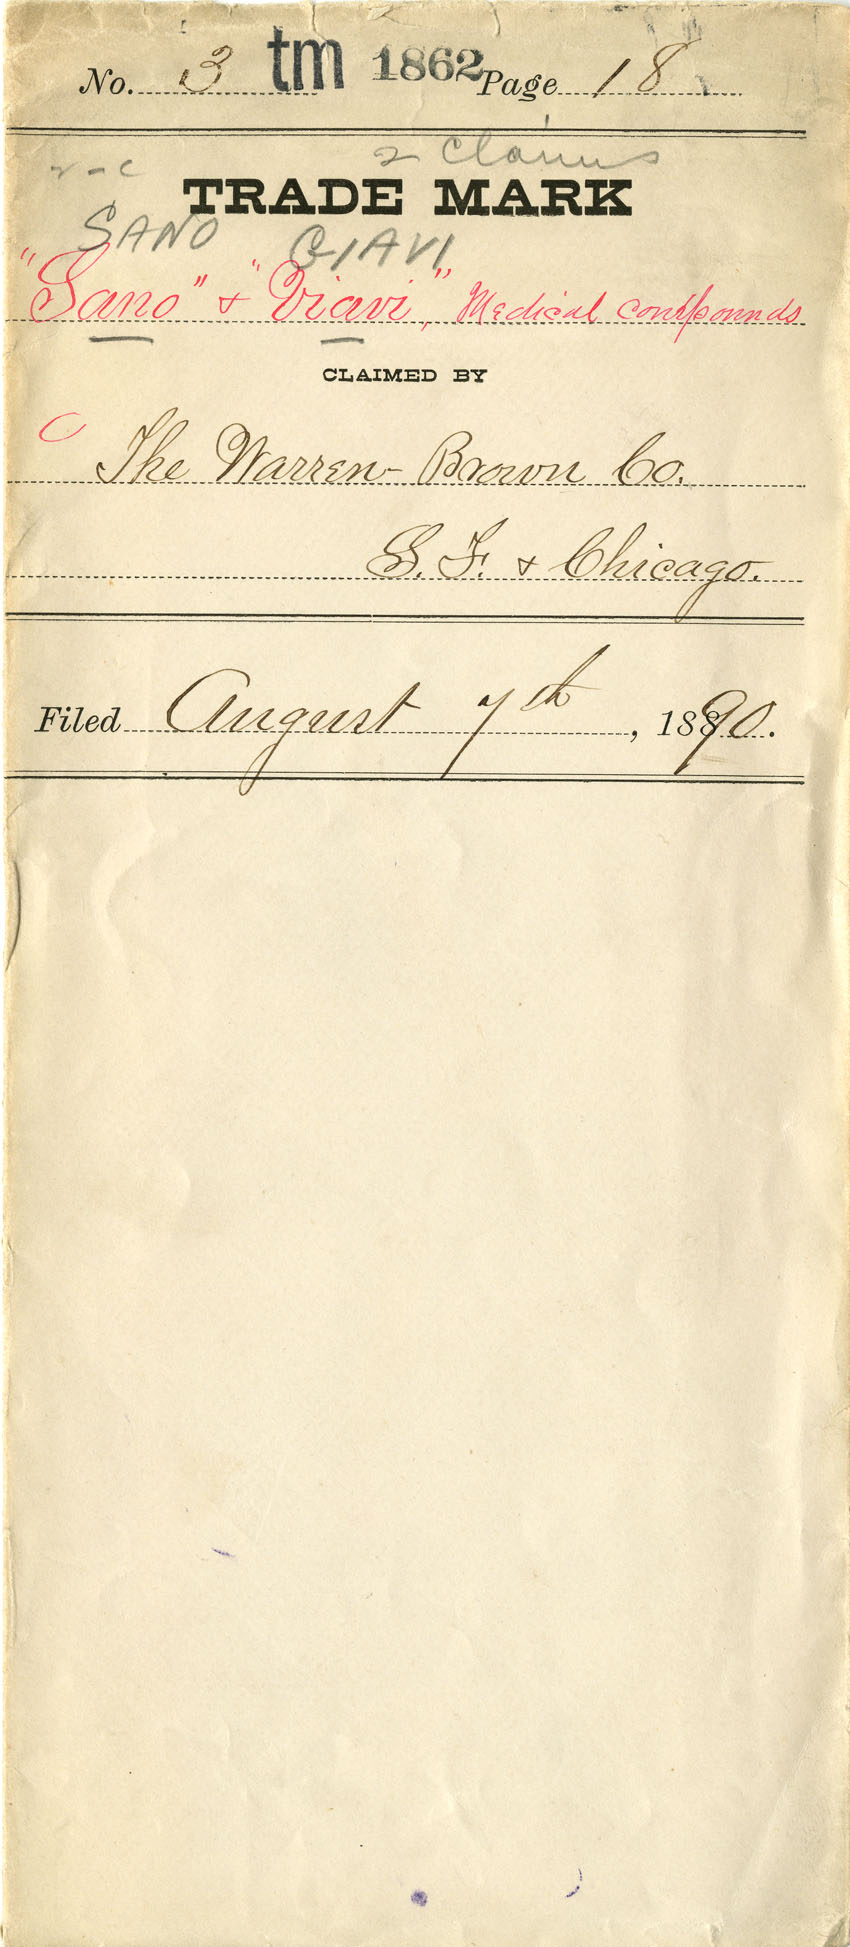 No. 3 tm 1862 Page 18
2 Claims
TRADE MARK
SANO GIAVI
"Sano" & "Viavi," Medical compounds
CLAIMED BY
The Warren-Brown Co.
S. F. & Chicago.
Filed August 7th, 1890.